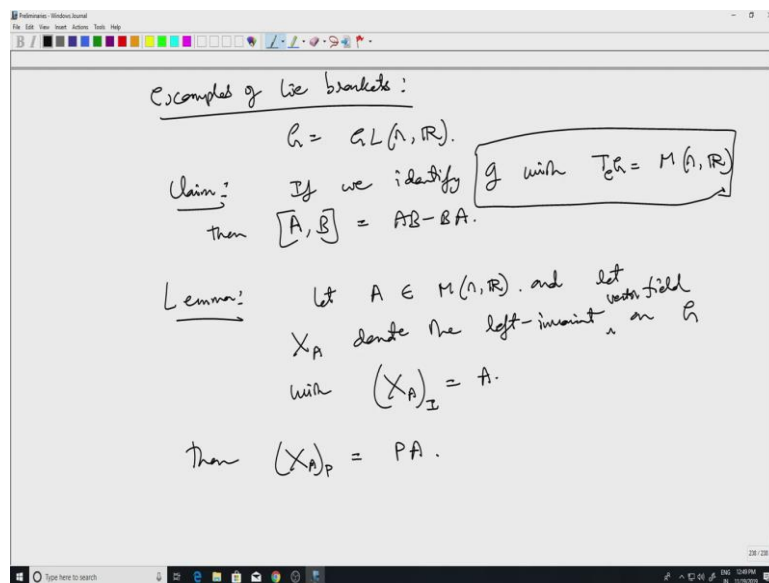 Preliminaries - Windows Journal
File Edit View Insert Actions Tools Help
Examples of Lie brackets :
G = GL(n, ℝ).
Claim : If we identify g with T_e G = M(n, ℝ)
then [A, B] = AB - BA.
Lemma : Let A ∈ M(n, ℝ). and let
X_A denote the left-invariant vector field on G
with (X_A)_I = A.
Then (X_A)_P = PA.
230 / 230
Type here to search
ENG 12:49 PM
IN